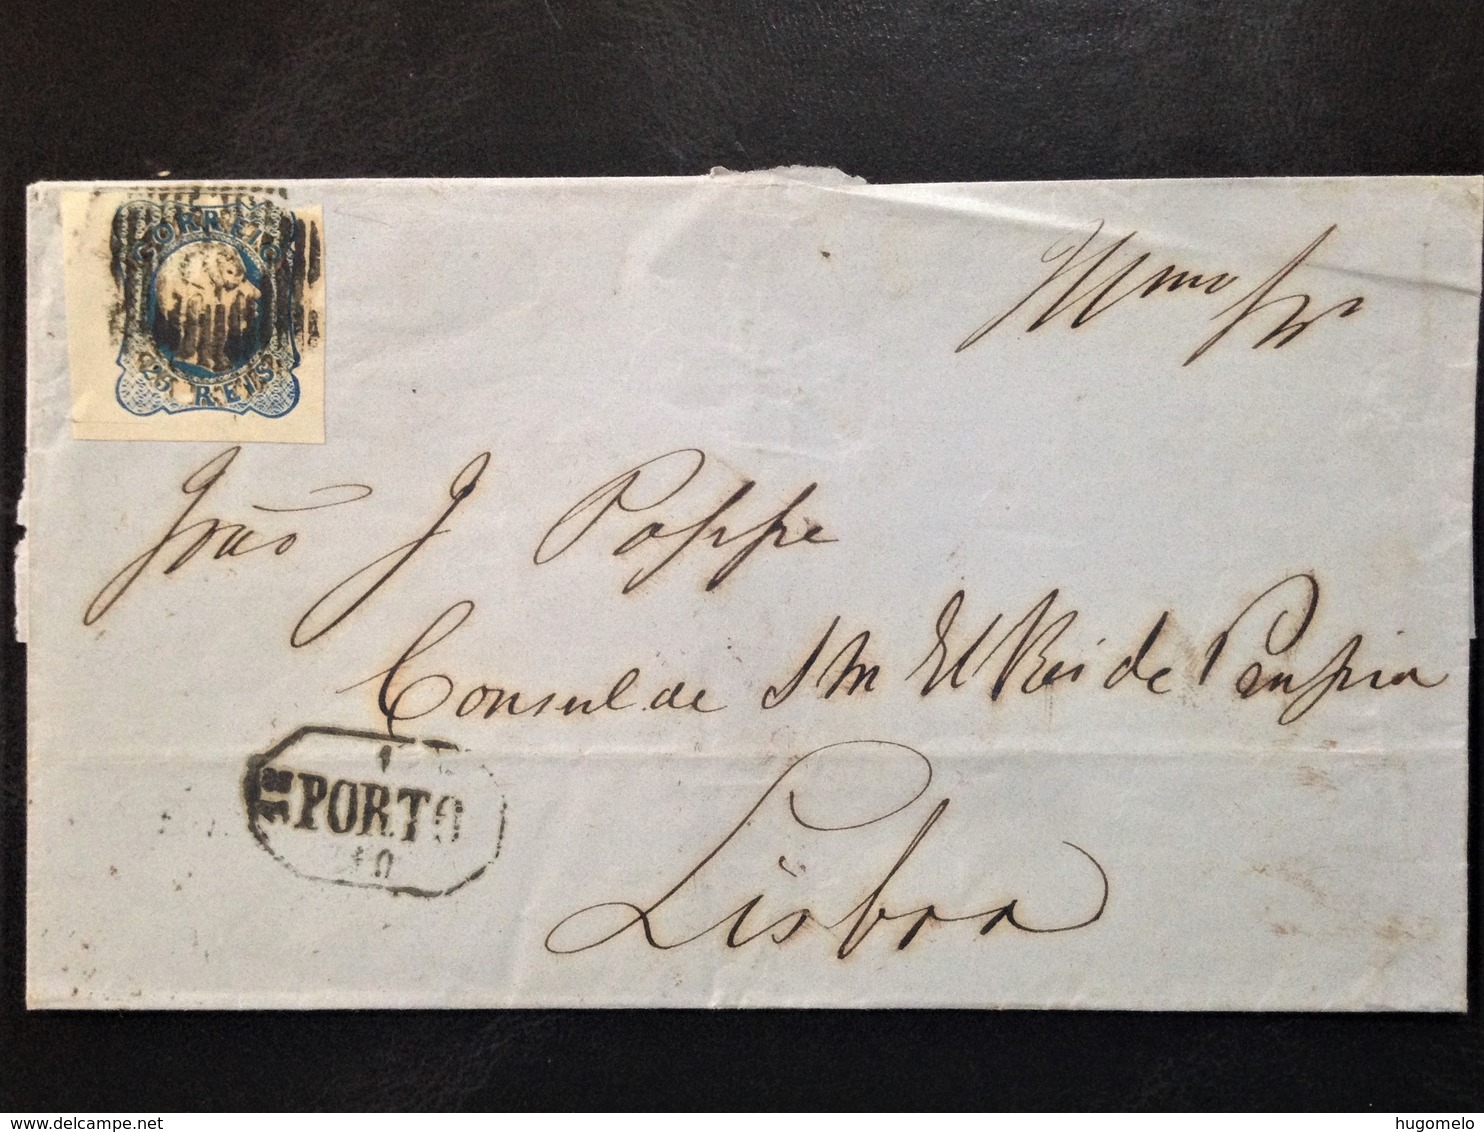 CORREIO
25 REIS
Illmo Snr
João J Poppe
Consul de S M El Rei de Prussia
12 PORTO
Lisboa
www.delcampe.net
hugomelo